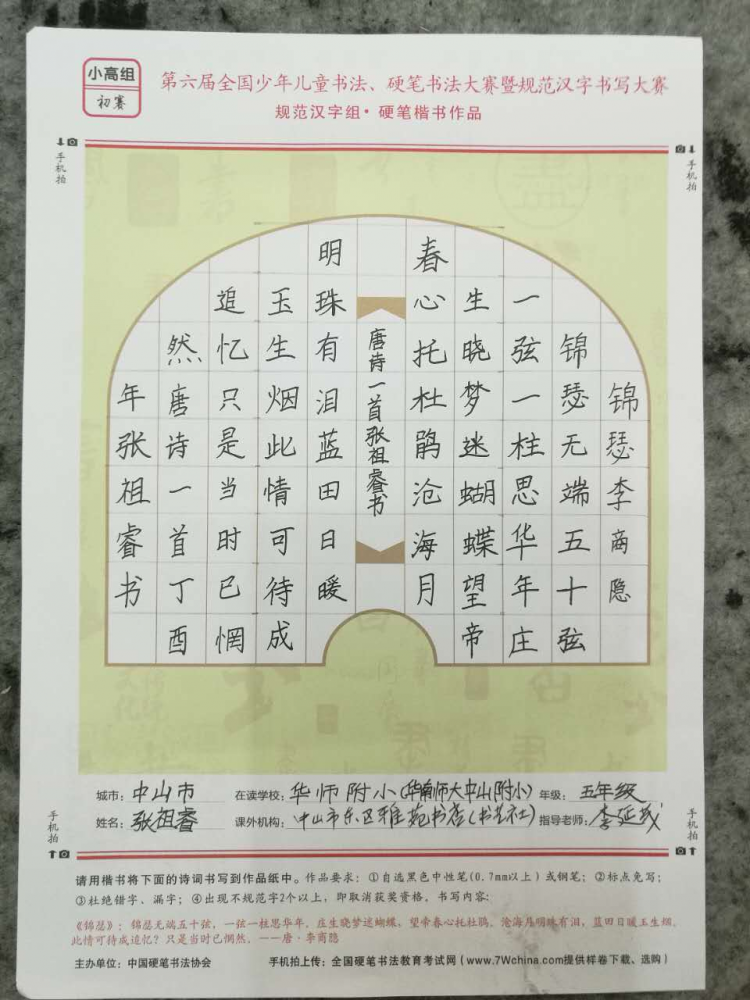 小高组
初赛
第六届全国少年儿童书法、硬笔书法大赛暨规范汉字书写大赛
规范汉字组·硬笔楷书作品
手机拍
手机拍
锦瑟李商隐
锦瑟无端五十弦
一弦一柱思华年庄
生晓梦迷蝴蝶望帝
春心托杜鹃沧海月
唐诗一首张祖睿书
明珠有泪蓝田日暖
玉生烟此情可待成
追忆只是当时已惘
然唐诗一首丁酉
年张祖睿书
城市：中山市 在读学校：华师附小（华南师大中山附小） 年级：五年级
姓名：张祖睿 课外机构：中山市东区雅苑书店（书艺社） 指导老师：李延茂
手机拍
手机拍
请用楷书将下面的诗词书写到作品纸中。作品要求：①自选黑色中性笔(0.7mm以上）或钢笔；②标点免写；
③杜绝错字、漏字；④出现不规范字2个以上，即取消获奖资格。书写内容：
《锦瑟》：锦瑟无端五十弦，一弦一柱思华年。庄生晓梦迷蝴蝶，望帝春心托杜鹃。沧海月明珠有泪，蓝田日暖玉生烟。
此情可待成追忆？只是当时已惘然。——唐·李商隐
主办单位：中国硬笔书法协会 手机拍上传：全国硬笔书法教育考试网（www.7Wchina.com提供样卷下载、选购）